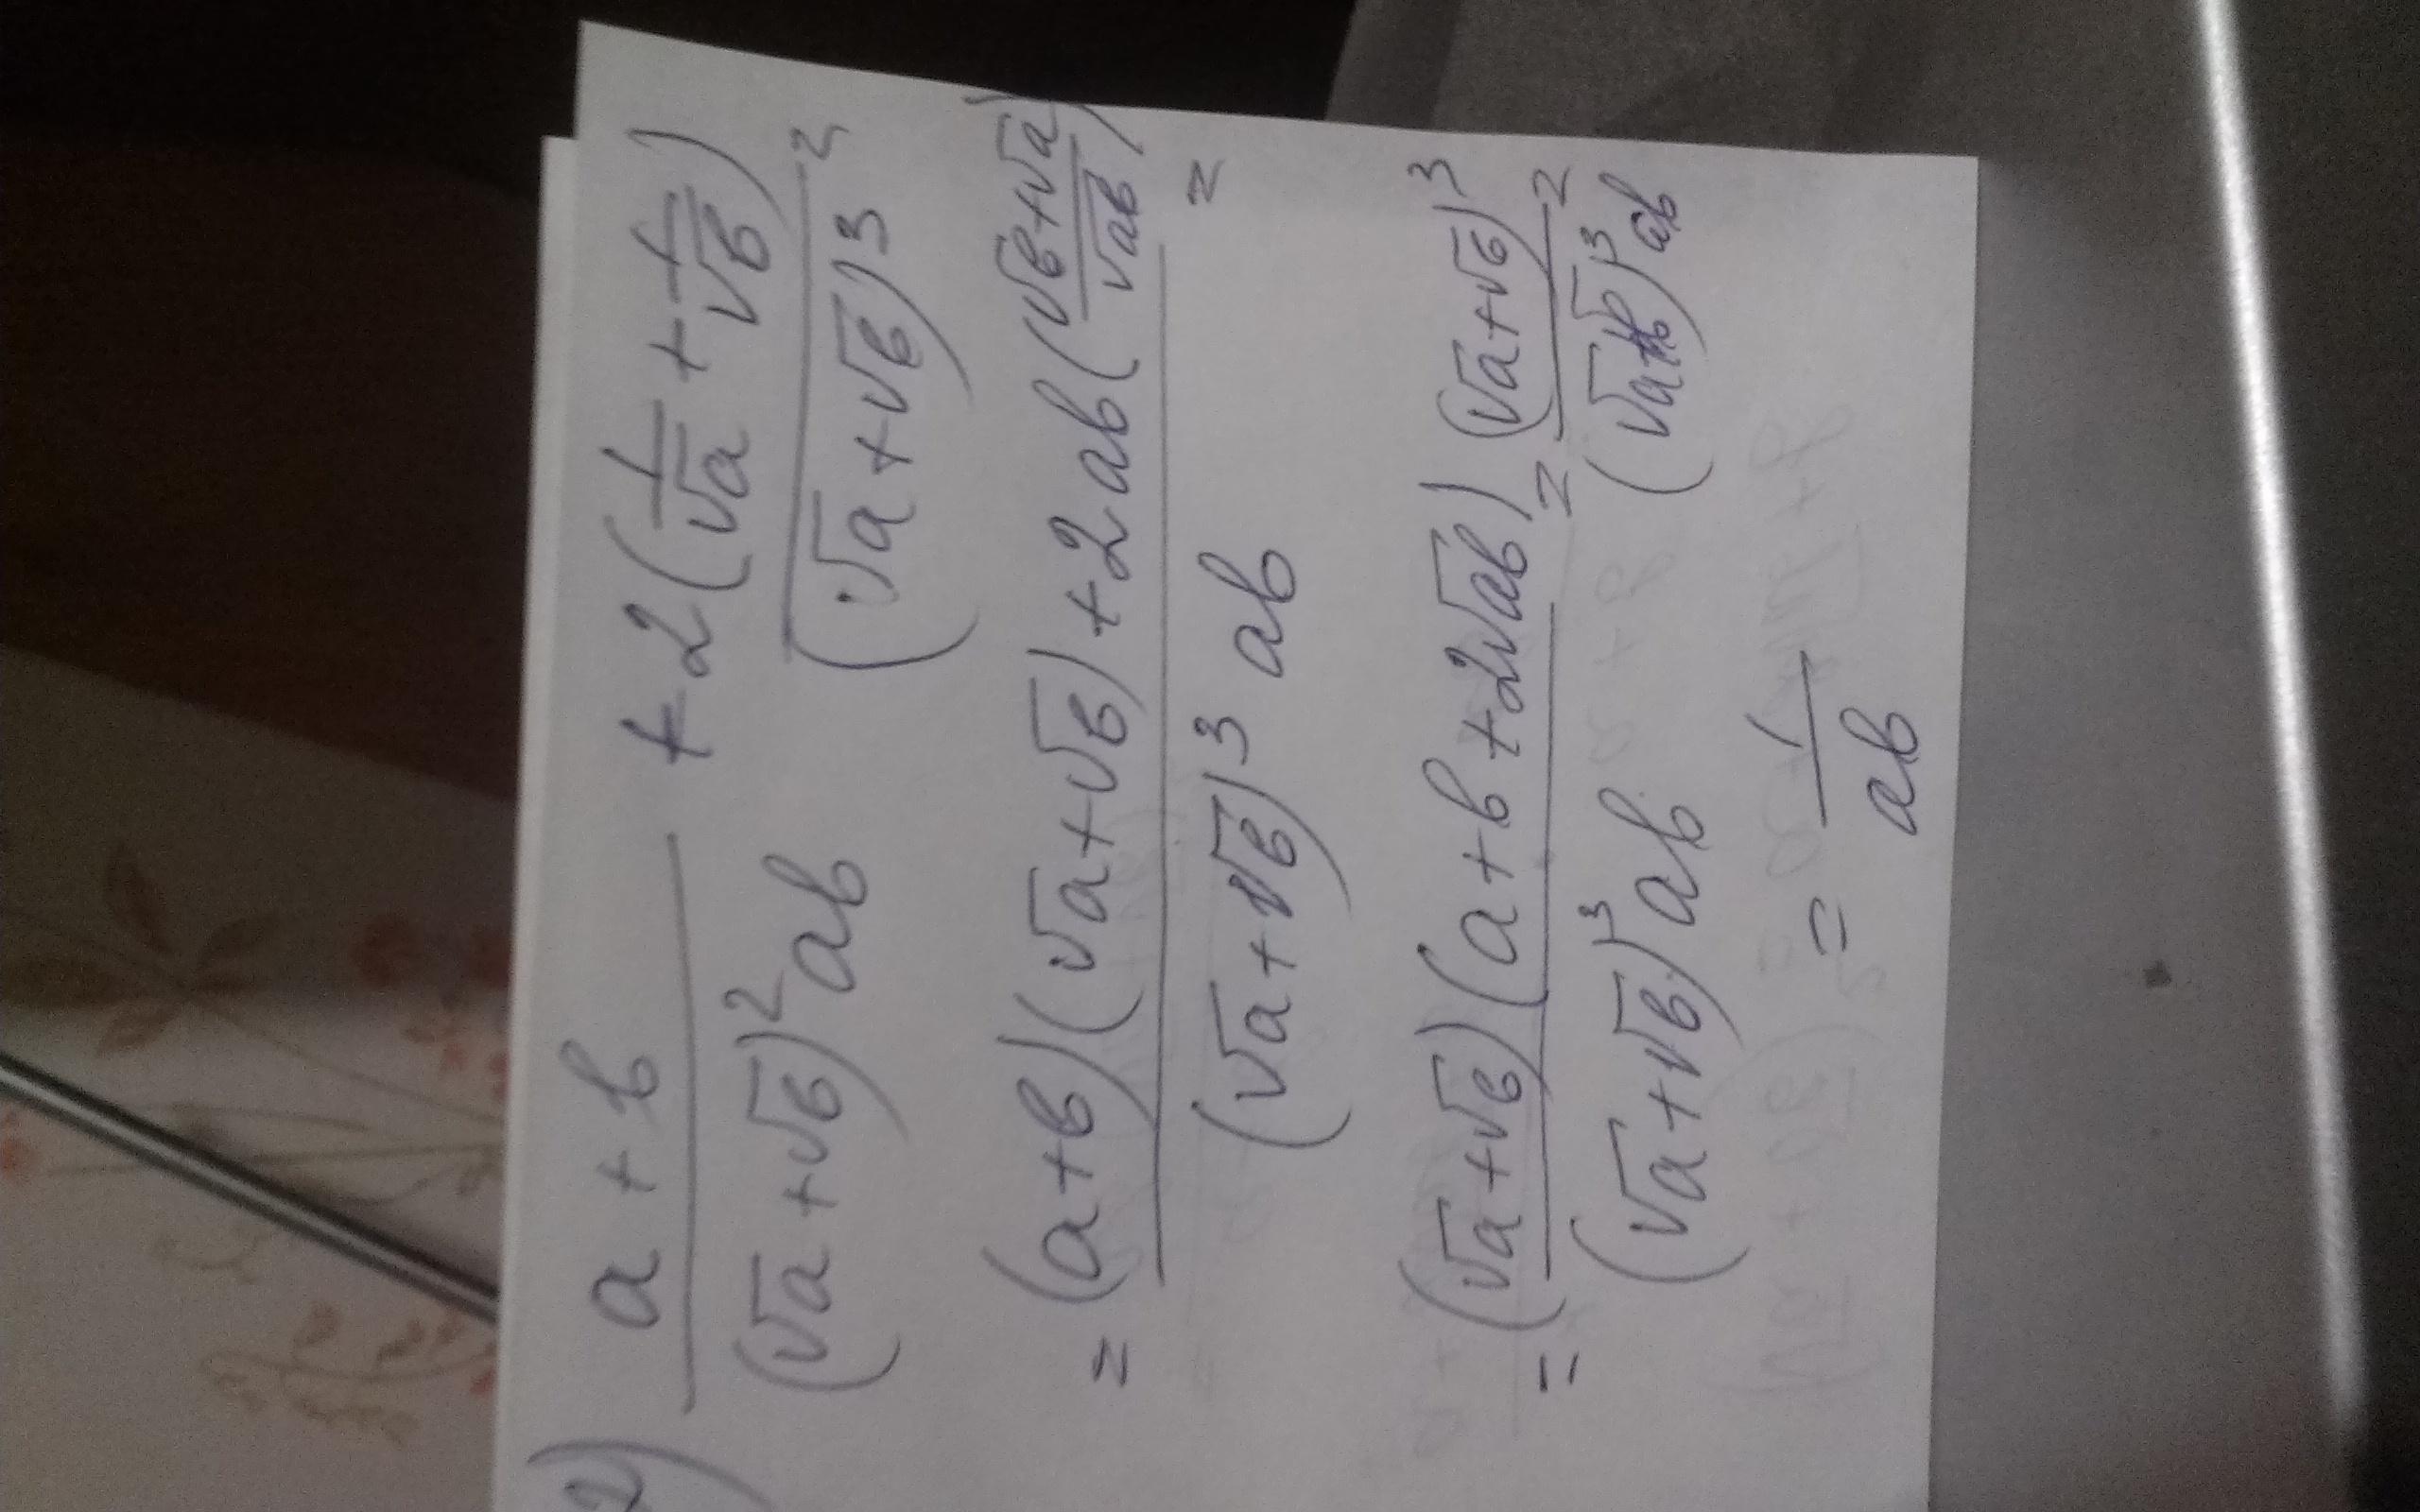 2) \frac{a+b}{(\sqrt{a}+\sqrt{b})^2 ab} + \frac{2(\frac{1}{\sqrt{a}}+\frac{1}{\sqrt{b}})}{(\sqrt{a}+\sqrt{b})^3} =
= \frac{(a+b)(\sqrt{a}+\sqrt{b})+2ab(\frac{\sqrt{b}+\sqrt{a}}{\sqrt{ab}})}{(\sqrt{a}+\sqrt{b})^3 ab} =
= \frac{(\sqrt{a}+\sqrt{b})(a+b+2\sqrt{ab})}{(\sqrt{a}+\sqrt{b})^3 ab} = \frac{(\sqrt{a}+\sqrt{b})^3}{(\sqrt{a}+\sqrt{b})^3 ab} =
= \frac{1}{ab}